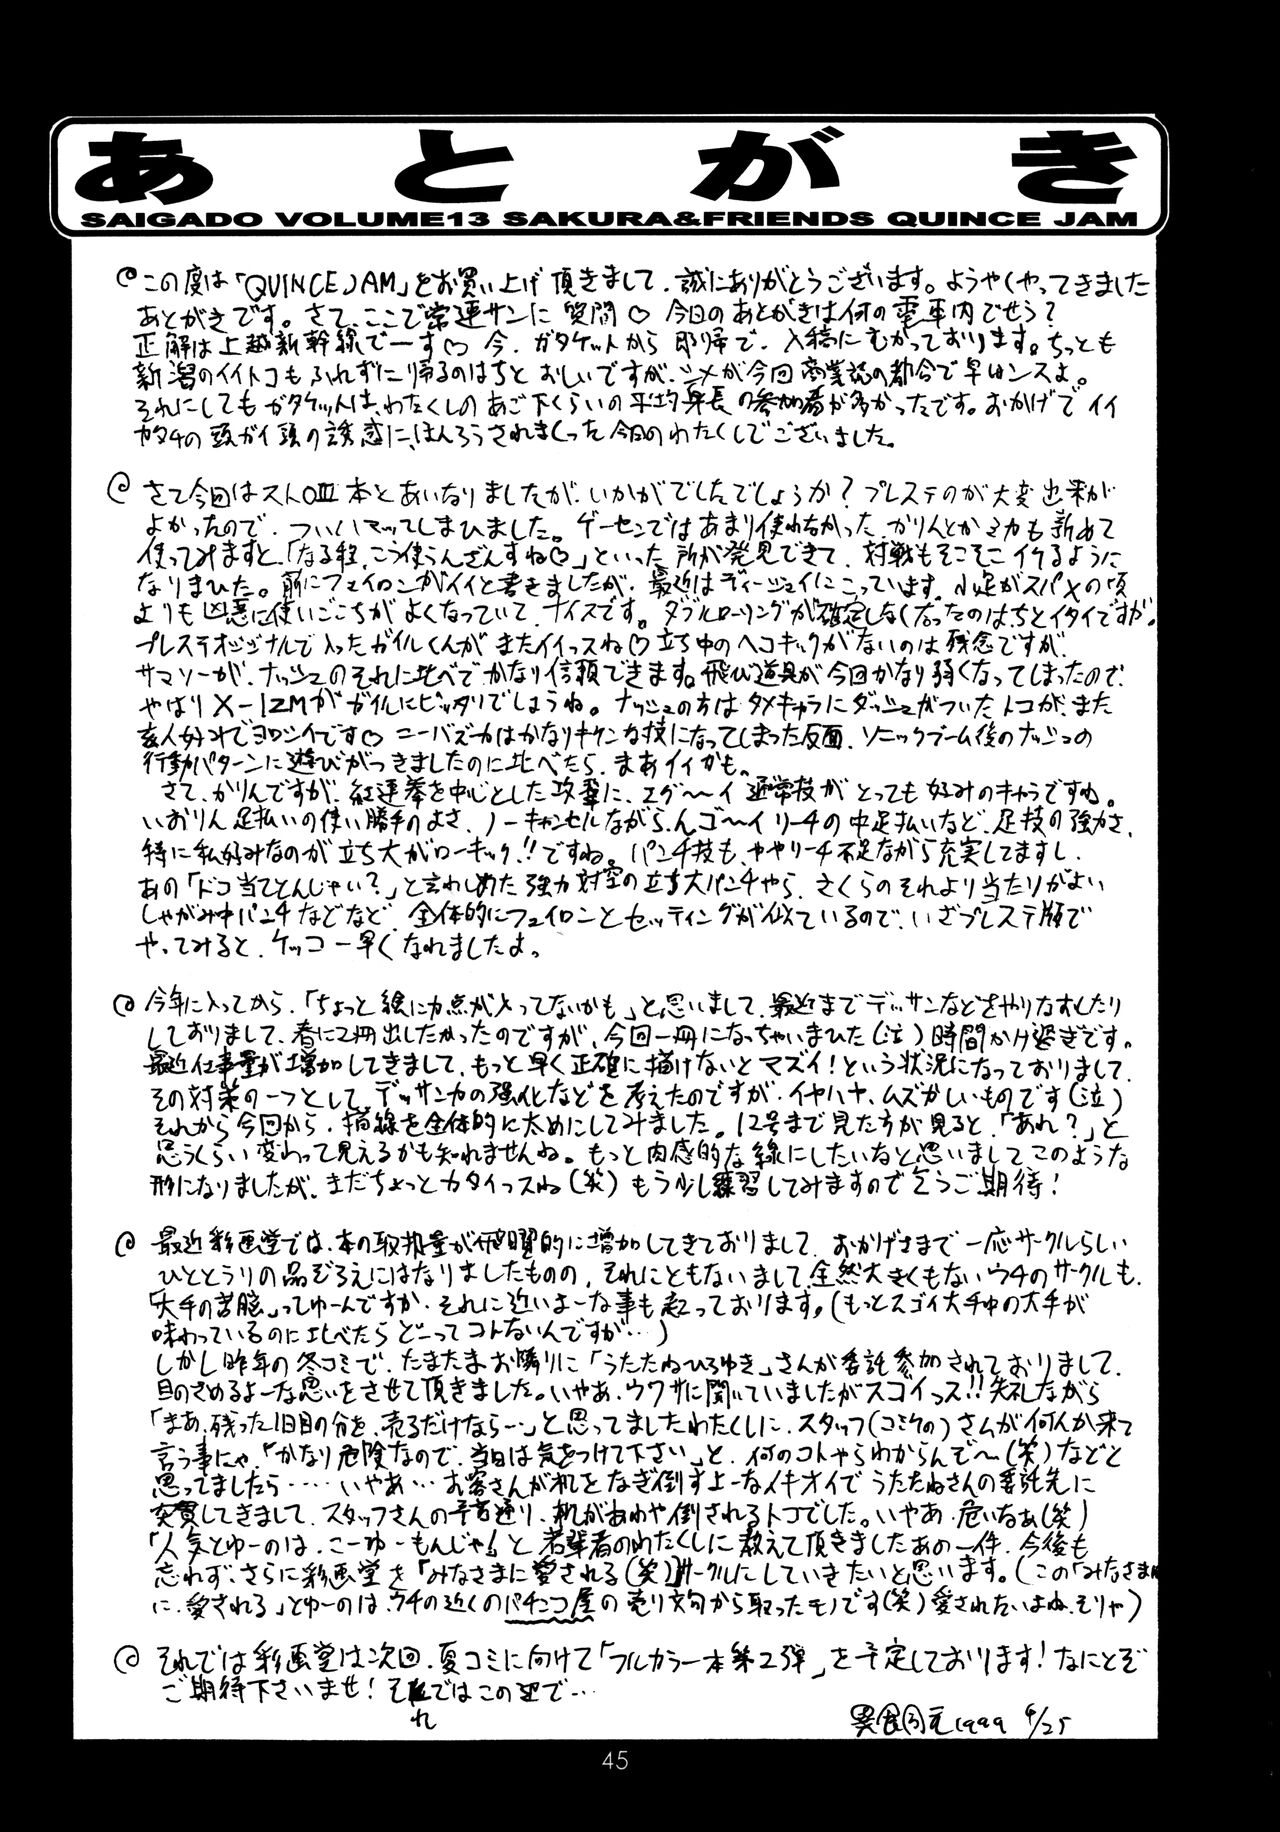 あとがき
SAIGADO VOLUME13 SAKURA&FRIENDS QUINCE JAM
この度は「QUINCE JAM」をお買い上げ頂きまして、誠にありがとうございます。ようやくやってきました
あとがきです。さて、ここで常連サンに質問♡ 今日のあとがきは何の電車内でせう?
正解は上越新幹線でーす♡ 今、ガタケットから即帰で、入稿にむかっております。ちっとも
新潟のイイトコもふれずに帰るのはちとおしいですが、〆が今回商業誌の都合で早いンスよ。
それにしてもガタケットは、わたくしのあご下くらいの平均身長の参加者が多かったです。おかげでイイ
カタチの頭ガイ頭の誘惑に、ほんろうされまくった今日のわたくしでございました。
さて今回はストZERO III本とあいなりましたが、いかがでしたでしょうか?プレステのが大変出来が
よかったので、ついついマッてしまひました。ゲーセンではあまり使わなかった、かりんとかミカも新めて
使ってみますと、「なる程、こう使うんざんすね♡」といった所が発見できて、対戦もそこそこイケるように
なりまひた。前にフェイロンがイイと書きましたが、最近はディージェイにこっています。小足がスパXの頃
よりも凶悪に使いごこちがよくなっていて、ナイスです。ダブルローリングが確定しなくなったのはちとイタイですが。
プレステオリジナルで入ったガイルくんがまたイイっスね♡立ち中のヘコキックがないのは残念ですが、
サマソーが、ナッシュのそれに比べてかなり信頼できます。飛び道具が今回かなり弱くなってしまったので、
やはりX-ISMがガイルにピッタリでしょうね。ナッシュの方はタメキャラにダッシュがついたトコが、また
玄人好みでヨロシイです♡ ニーバズーカはかなりキケンな技になってしまった反面、ソニックブーム後のナッシュの
行動パターンに遊びがつきましたのに比べたら、まあイイかも。
さて、かりんですが、紅蓮拳を中心とした攻撃に、エグ〜イ通常技がとっても好みのキャラですね。
いおりん足払いの使い勝手のよさ、ノーキャンセルながらんゴ〜イリーチの中足払いなど、足技の強力さ、
特に私好みなのが立ち大がローキック!!ですね。パンチ技も、ややリーチ不足ながら充実してますし、
あの「ドコ当てとんじゃい?」と言わしめた強力対空の立ち大パンチやら、さくらのそれより当たりがよい
しゃがみ中パンチなどなど、全体的にフェイロンとセッティングが似ているので、いざプレステ版で
やってみると、ケッコー早くなれましたよ。
今年に入ってから、「ちょっと絵に力点が入ってないかも」と思いまして、最近までデッサンなどをやりなおしたり
しておりまして、春に2冊出したかったのですが、今回一冊になっちゃいまひた(泣)時間かけ過ぎです。
最近仕事量が増加してきまして、もっと早く正確に描けないとマズイ!という状況になっておりまして、
その対策の一つとして、デッサン力の強化などを考えたのですが、イヤハヤ、ムズかしいものです(泣)
それから今回から、描線を全体的に太めにしてみました。12号まで見た方が見ると、「あれ?」と
思うくらい変わって見えるかも知れませんね。もっと肉感的な線にしたいなと思いましてこのような
形になりましたが、まだちょっとカタイっスね(笑)もう少し練習してみますので乞うご期待!
最近彩画堂では、本の取扱量が飛躍的に増加してきておりまして、おかげさまで一応サークルらしい
ひととうりの品ぞろえにはなりましたものの、それにともないまして、全然大きくもないウチのサークルも、
「大手の苦脳」ってゆーんですか、それに近いよーな事も起っております。(もっとスゴイ大手中の大手が
味わっているのに比べたらどーってコトないんですが…)
しかし昨年の冬コミで、たまたまお隣りに「うたたねひろゆき」さんが委託参加されておりまして、
目のさめるよーな思いをさせて頂きました。いやあ、ウワサに聞いていましたがスゴイっス!!失礼ながら
「まあ、残った1日目の分を、売るだけならー」と思ってましたわたくしに、スタッフ(コミケの)さんが何人か来て
言う事にゃ、「かなり危険なので、当日は気をつけて下さい」と、何のコトやらわからんぞ〜(笑)などと
思ってましたら……いやあ…お客さんが机をなぎ倒すよーなイキオイでうたたねさんの委託先に
突貫してきまして、スタッフさんの予言通り、机があわや倒されるトコでした。いやあ、危いなあ(笑)
「人気とゆーのは、こーゆーもんじゃ!」と若輩者のわたくしに教えて頂きましたあの一件、今後も
忘れず、さらに彩画堂を「みなさまに愛される(笑)」サークルにしていきたいと思います。(この「みなさま
に、愛される」とゆーのは、ウチの近くのパチンコ屋の売り文句から取ったモノです(笑)愛されたいよね、そりゃ)
それでは彩画堂は次回、夏コミに向けて「フルカラー本第2弾」を予定しております!なにとぞ
ご期待下さいませ!それではこの辺で…
れ
異食同元 1999 4/25
45